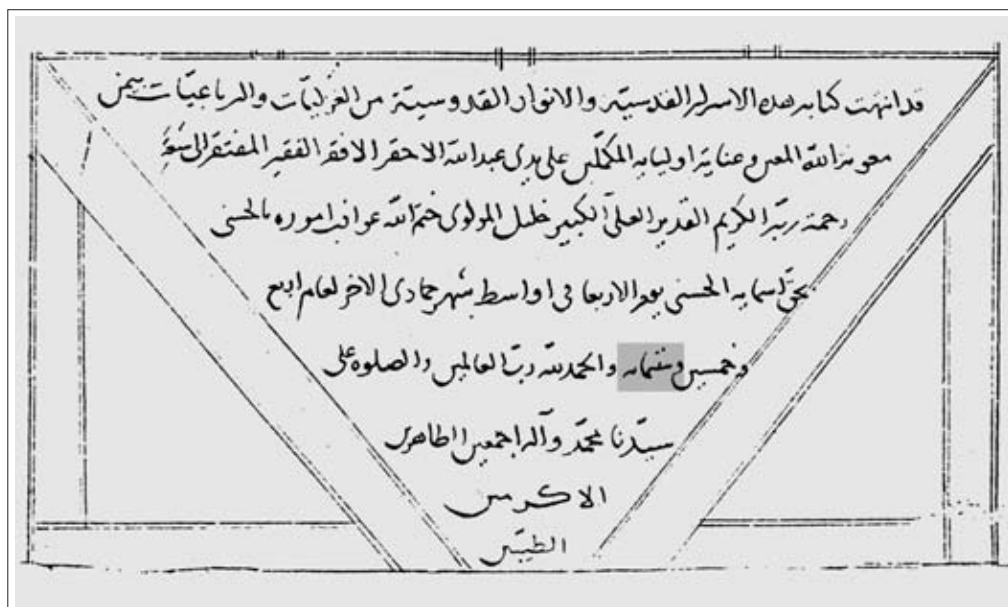 قد انتهت كتابة هذه الاسرار القدسيّة والانوار القدوسيّة من الغزليّات والرباعيّات بيمن
معونة الله المعين وعناية اوليايه المكمّلين على يدي عبد الله الاحقر الافقر الفقير المفتقر الى
رحمة ربّه الكريم القدير العلىّ الكبير خليل المولوى ختم الله عواقب اموره بالحسنى
بحقّ اسمايه الحسنى يوم الاربعا فى اواسط شهر جمادى الاخر لعام اربع
وخمسين وستمايه والحمد لله ربّ العالمين والصلوه على
سيّدنا محمّد وآله اجمعين الطاهرين
الاكرمين
الطيّبين